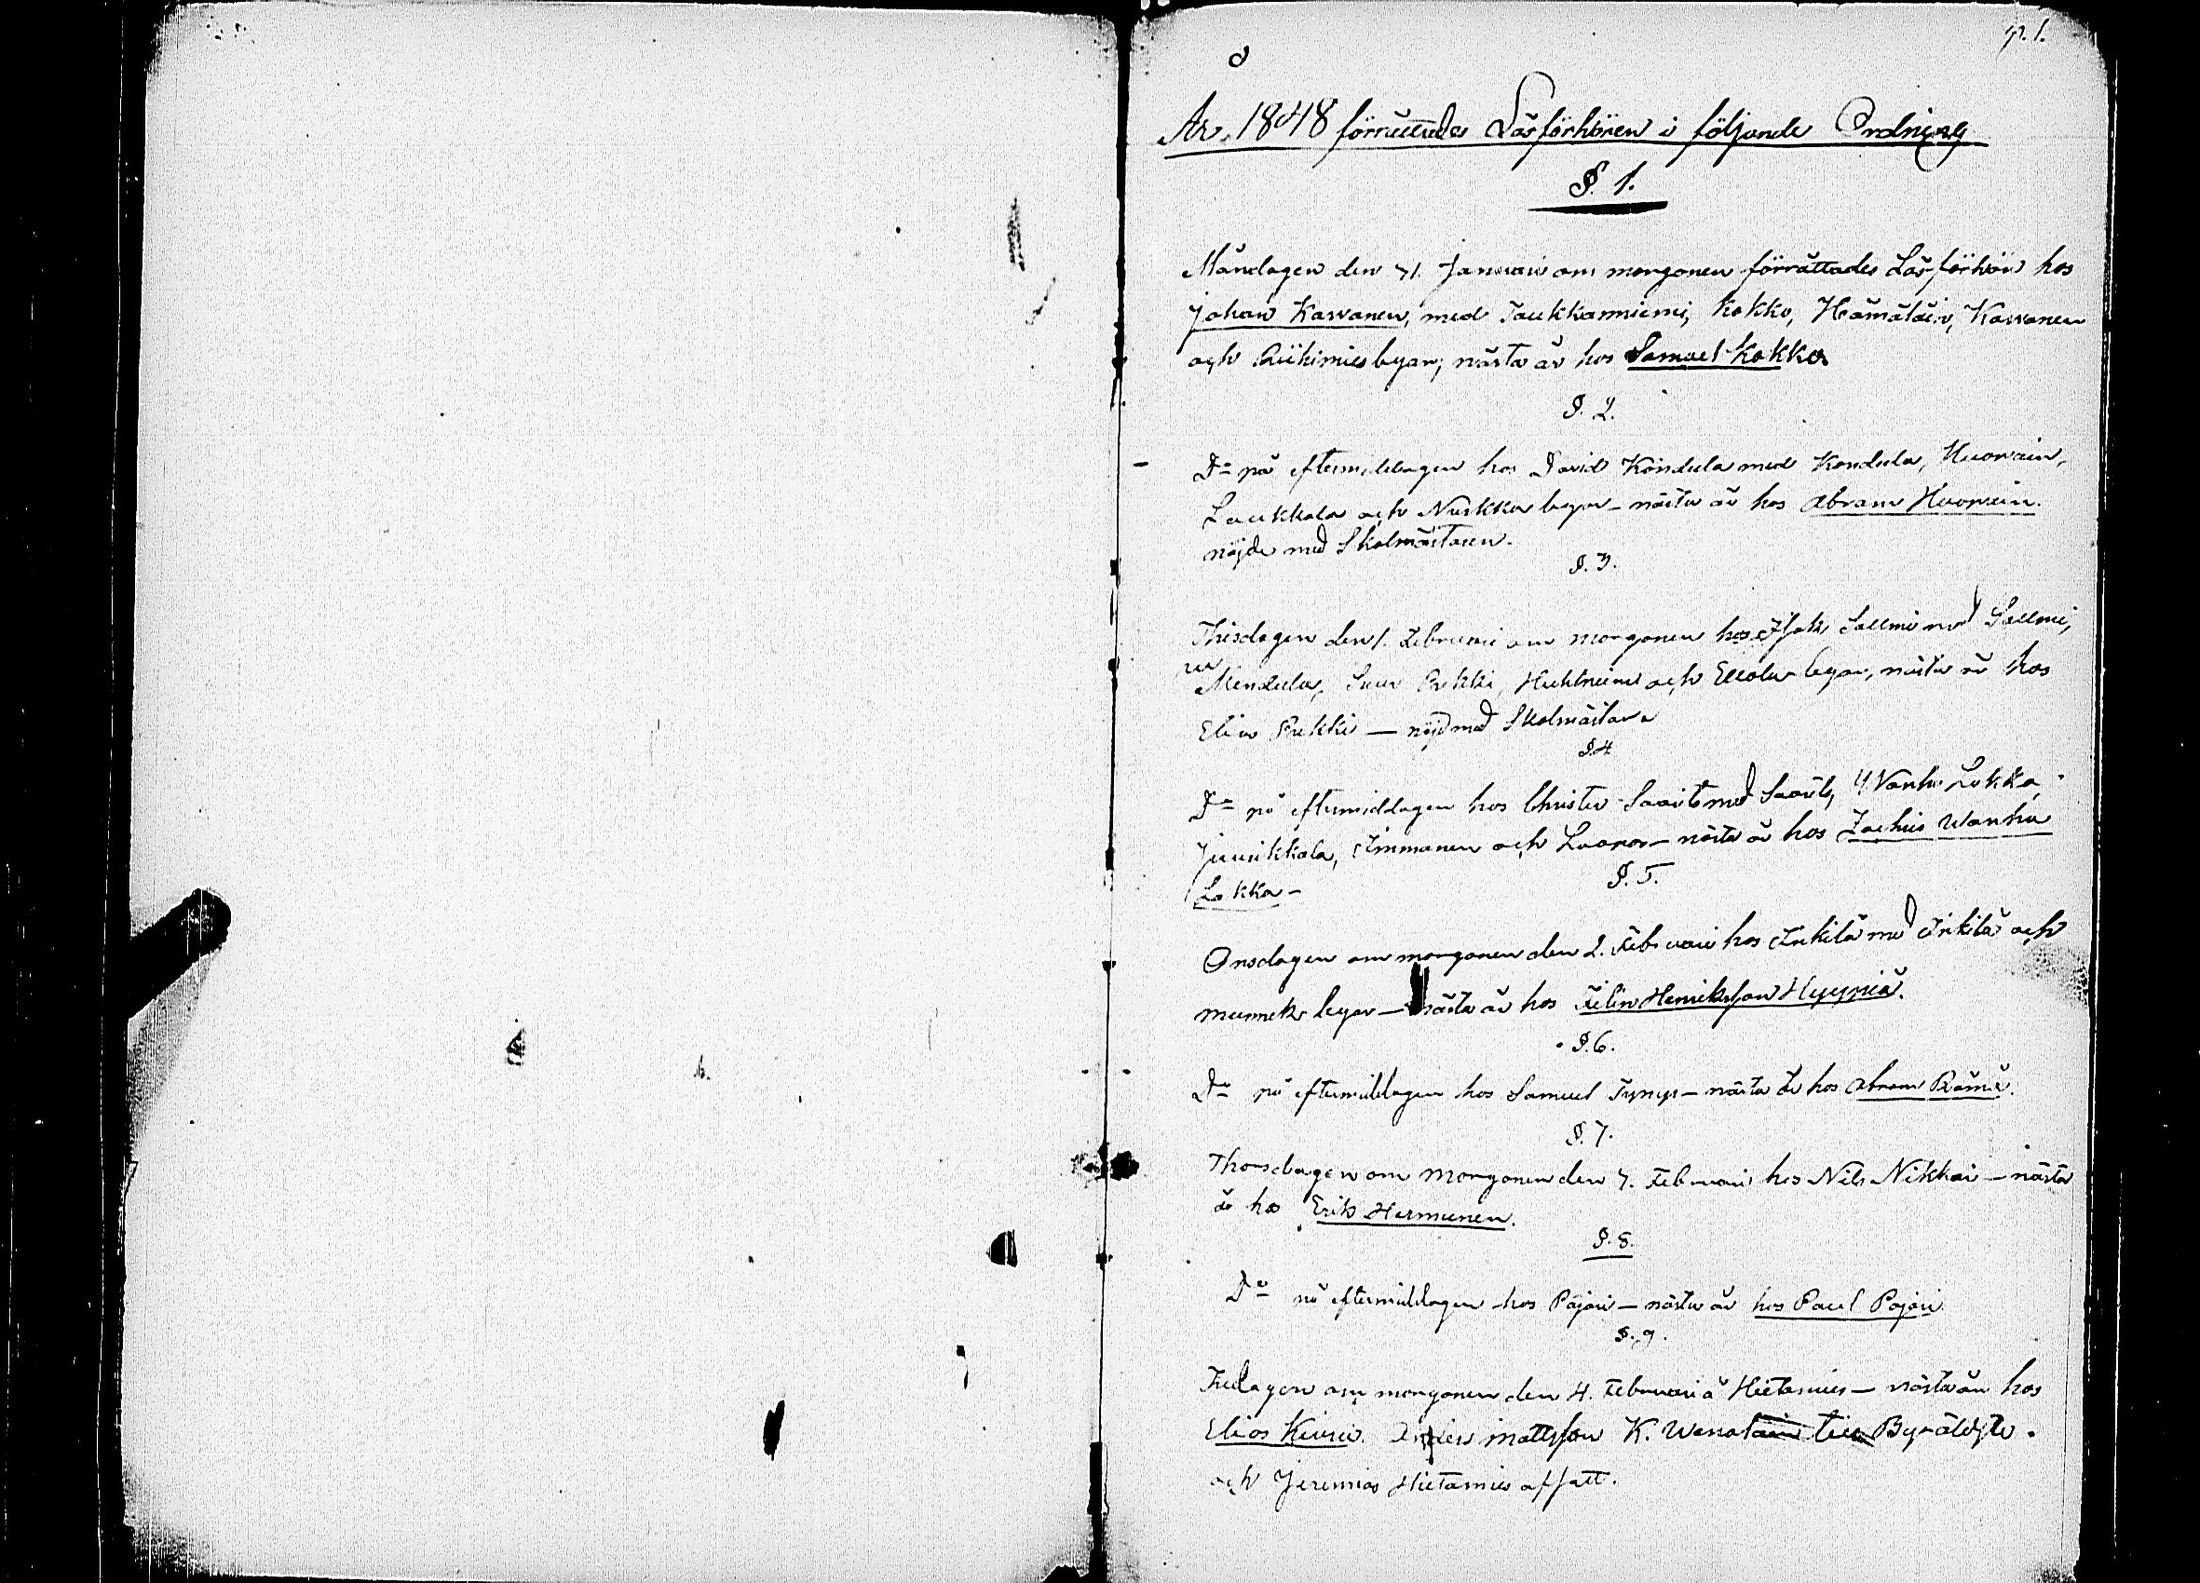 p. 1.
År 1848 förrättades Läsförhören i följande Ordning
§. 1.
Måndagen den 31. Januari om morgonen förrättades Läsförhör hos
Johan Karvanen, med Taukkanniemi, Kokko, Hämäläin, Karvanen
och Riihimies byar; nästa år hos Samuel Kokko
§. 2.
Do på eftermiddagen hos David Kondula med Kondula, Huovain,
Laukkala och Nuskka byar – nästa år hos Abram Huovain.
nöjde med Skolmästaren.
§. 3.
Thisdagen den 1. Februari om morgonen hos Isak Salmi med Salmi,
Mendula, Suur Prekki, och byar, nästa år hos
Elias Prekki — nöjd med Skolmästare
§. 4
Do på eftermiddagen hos Christer Saarits med Saarits, Vanha Lokka,
Juusikkala, Immonen och Laapas – nästa år hos Zachris Wanha
Lokka –
§. 5.
Onsdagen om morgonen den 2. Februari hos Inkilä med Inkilä och
Munnek byar — nästa år hos Felin Henriksson Hyypiä.
§. 6.
Do på eftermiddagen hos Samuel Tynys – nästa år hos Abram Rämä.
§. 7.
Thorsdagen om morgonen den 3. Februari hos Nils Nikkai — nästa
år hos Erik Hermunen.
§. 8.
Do på eftermiddagen hos Pajari — nästa år hos Paul Pajari
§. 9.
Fredagen om morgonen den 4. Februari å Hietamies — nästa år hos
Elias Kiuru. Anders Mattsson K. till Byäldste.
och Jeremias Hietamies afsatt.